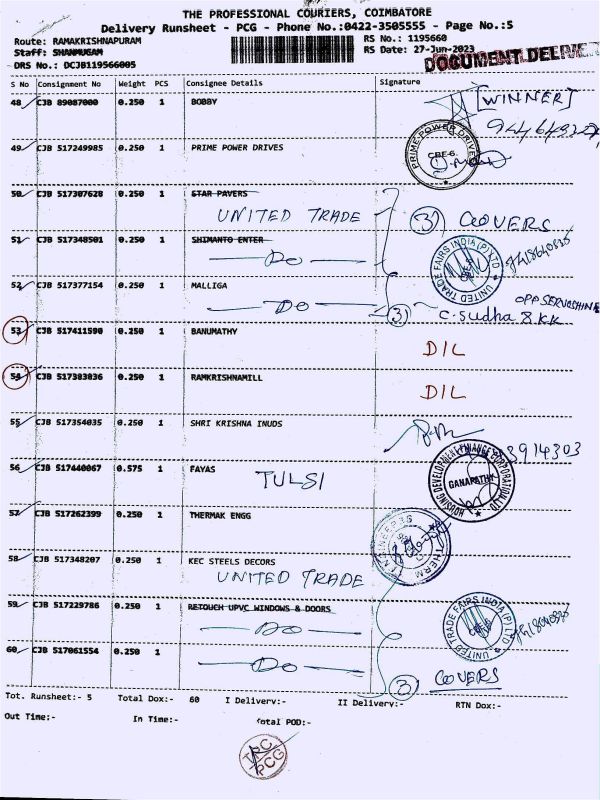 THE PROFESSIONAL COURIERS, COIMBATORE
Delivery Runsheet - PCG - Phone No.:0422-3505555 - Page No.:5
Route: RAMAKRISHNAPURAM
RS No.: 1195660
Staff: SHANMUGAM
RS Date: 27-Jun-2023
DOCUMENT DELIVE
DRS No.: DCJB119566005
S No Consignment No Weight PCS Consignee Details Signature
48 CJB 89087000 0.250 1 BOBBY
[WINNER]
49 CJB 517249985 0.250 1 PRIME POWER DRIVES
PRIME POWER DRIVES CBE-6.
50 CJB 517307628 0.250 1 STAR PAVERS
UNITED TRADE
3) COOVERS
51 CJB 517348501 0.250 1 SHIMANTO ENTER
— Do —
UNITED TRADE FAIRS INDIA (P) LTD
52 CJB 517377154 0.250 1 MALLIGA
— Do —
3) C. Sudha 8 KK
53 CJB 517411590 0.250 1 BANUMATHY
DIL
54 CJB 517383836 0.250 1 RAMKRISHNAMILL
DIL
55 CJB 517354035 0.250 1 SHRI KRISHNA INUDS
3914303
56 CJB 517440067 0.575 1 FAYAS
TULSI
HOUSING DEVELOPMENT FINANCE CORPORATION LTD GANAPATHY
57 CJB 517262399 0.250 1 THERMAK ENGG
58 CJB 517348207 0.250 1 KEC STEELS DECORS
UNITED TRADE
59 CJB 517229786 0.250 1 RETOUCH UPVC WINDOWS & DOORS
— Do —
UNITED TRADE FAIRS INDIA (P) LTD
60 CJB 517061554 0.250 1
— Do —
3) COVERS
Tot. Runsheet:- 5 Total Dox:- 60 I Delivery:- II Delivery:- RTN Dox:-
Out Time:- In Time:- Total POD:-
TPC PCG